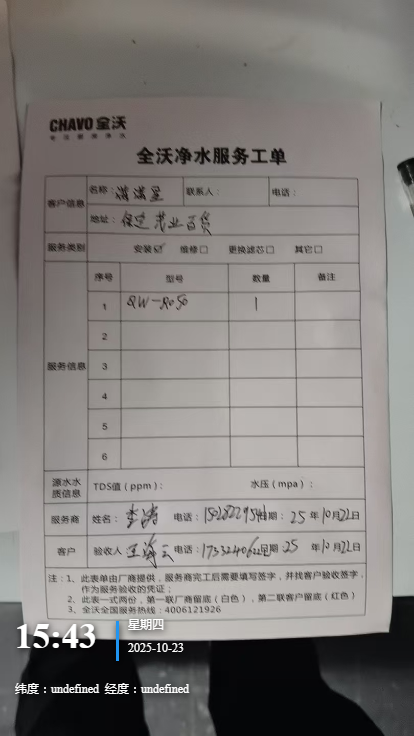 CHAVO 全沃
专注健康净水
全沃净水服务工单
客户信息 名称： 满满星 联系人： 电话：
地址： 保定茂业百货
服务类别 安装☑ 维修□ 更换滤芯□ 其它□
服务信息 序号 型号 数量 备注
1 QW-RO50 1
2
3
4
5
6
源水水质信息 TDS值（ppm）： 水压（mpa）：
服务商 姓名： 李涛 电话： 日期： 25 年 10 月 22 日
客户 验收人 电话： 日期： 25 年 10 月 22 日
注：1、此表单由厂商提供，服务商完工后需要填写签字，并找客户验收签字，
作为服务验收的凭证；
2、此表一式两份，第一联厂商留底（白色），第二联客户留底（红色）
3、全沃全国服务热线：4006121926
15:43
星期四
2025-10-23
纬度：undefined 经度：undefined